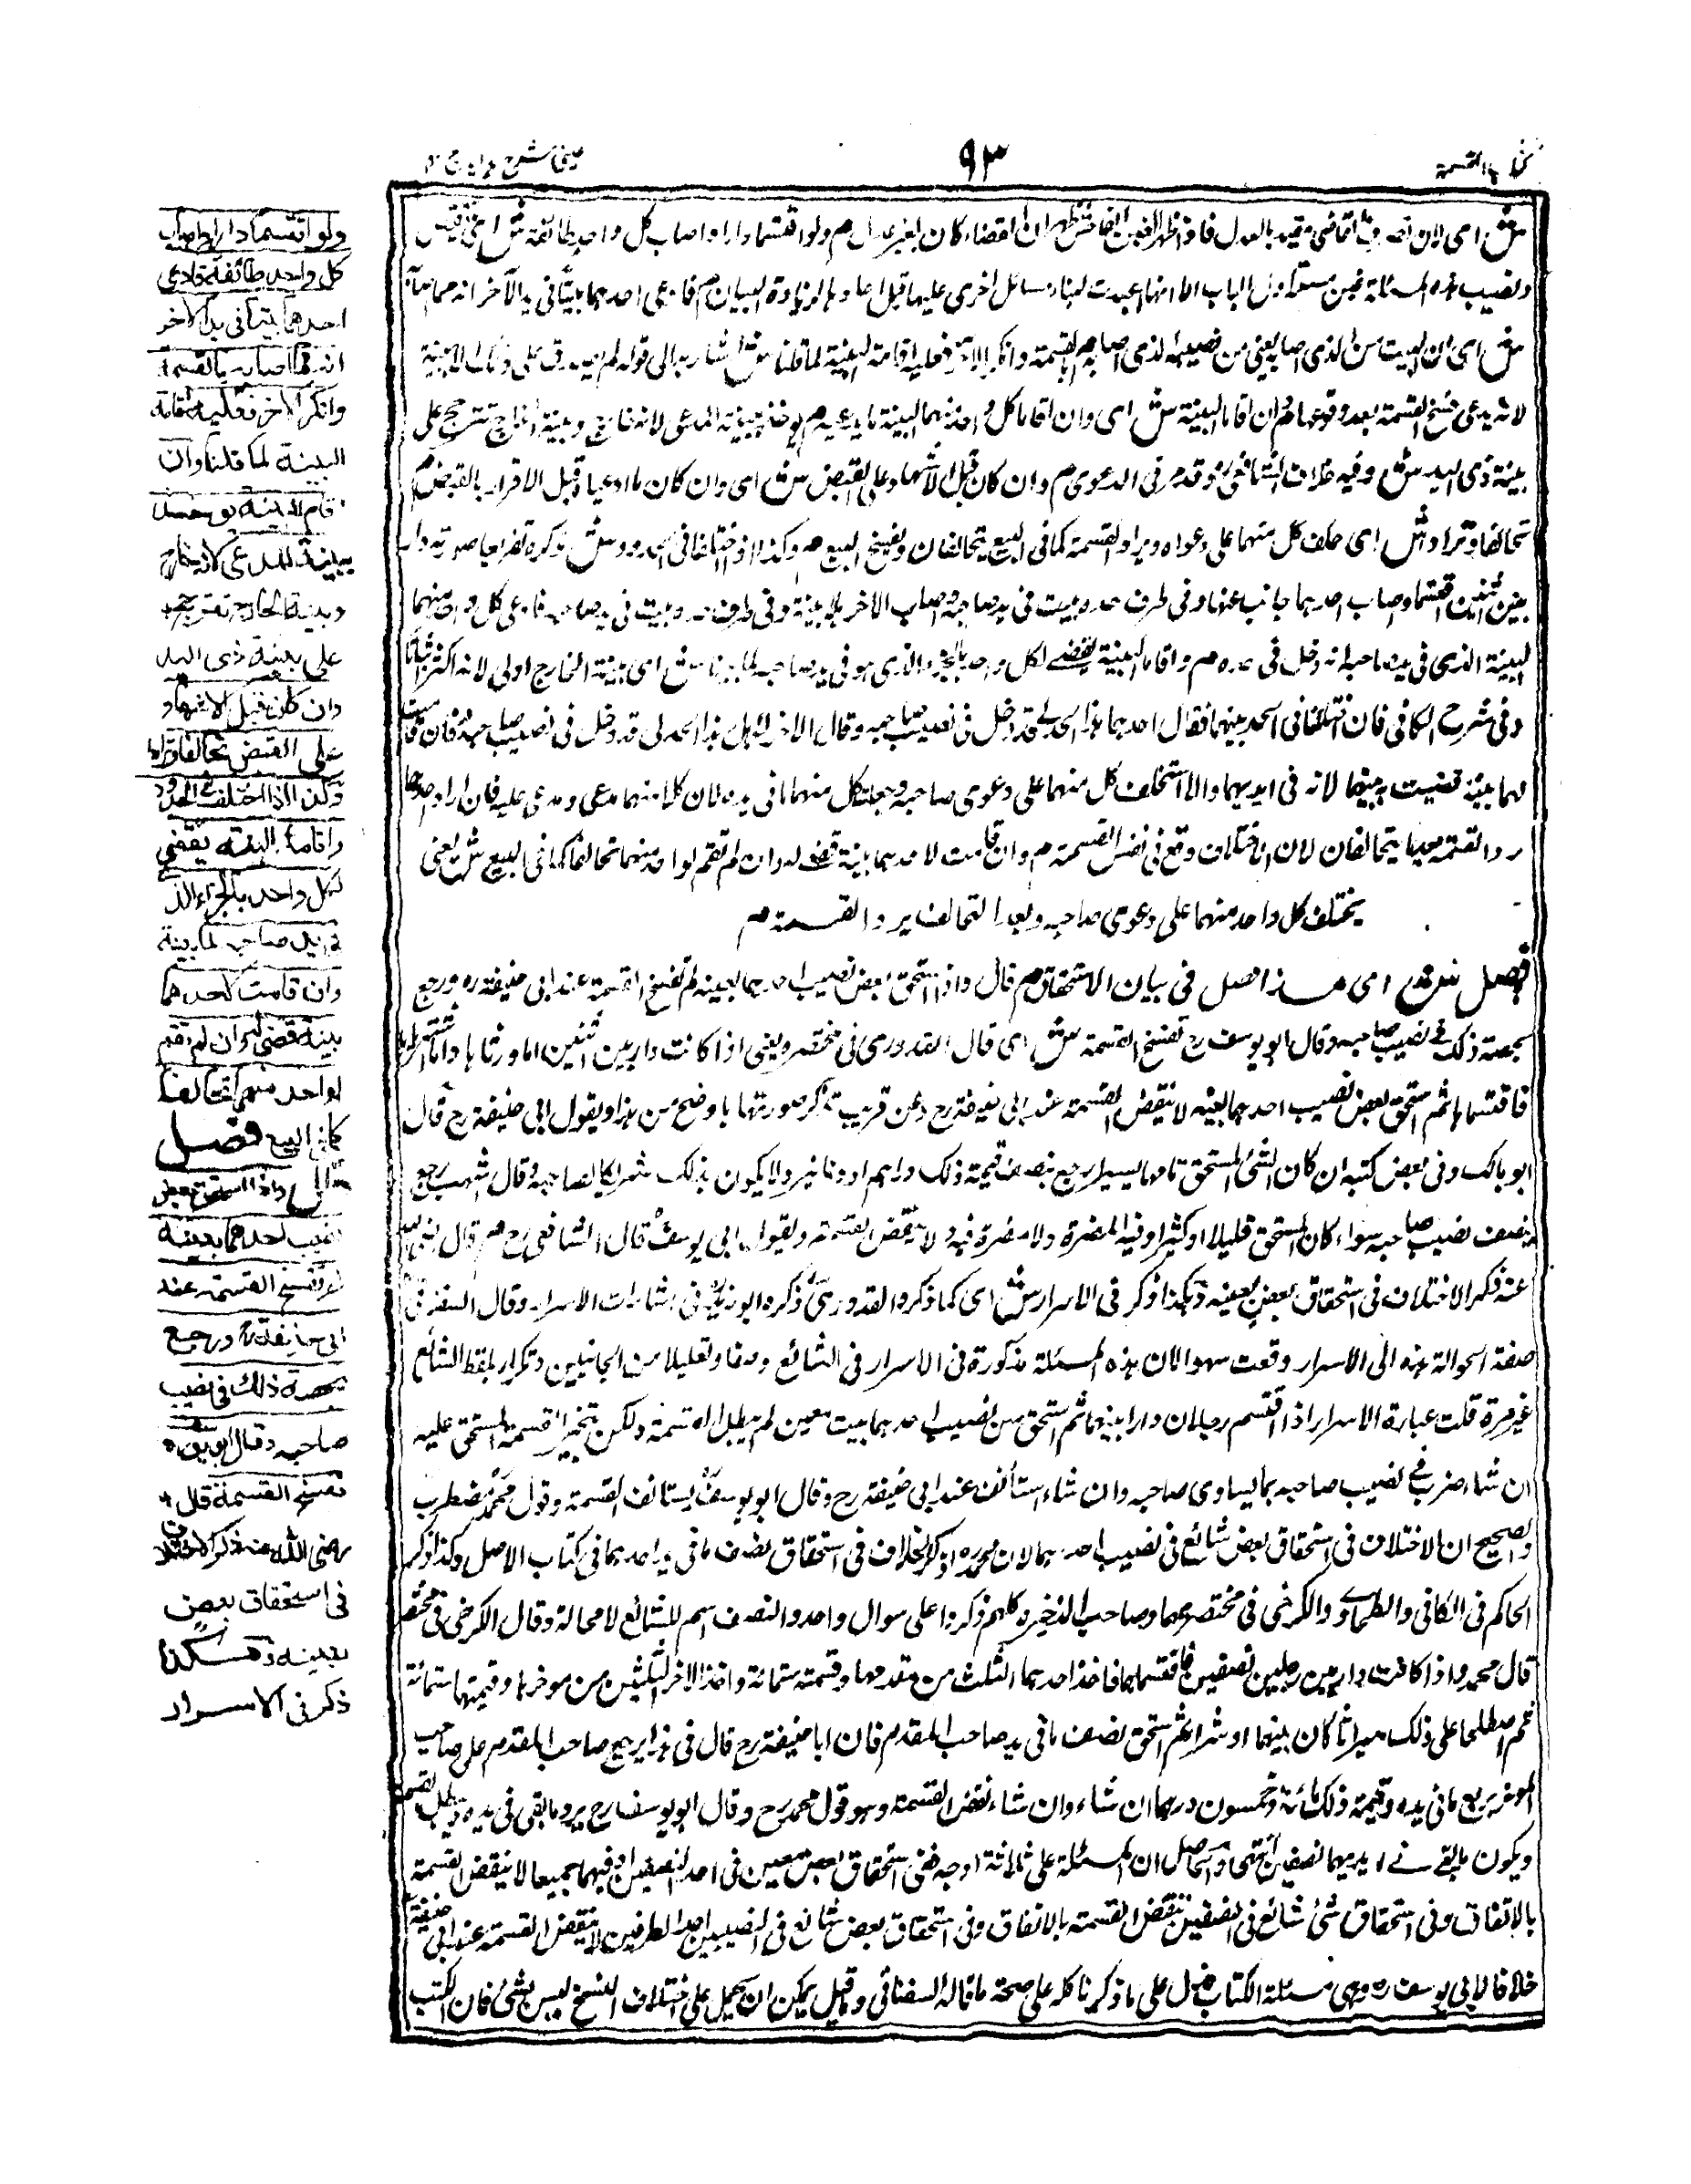 كتاب القسمة
٩٣
عينى شرح هدايه ج
ش اى لان تصرف القاضى مقيد بالعدل فاذا ظهر الغبن الفاحش ظهر ان القضاء كان بغير عدل م ولو اقتسما دارا واصاب كل واحد طائفة ش
لانه يدعى فسخ القسمة بعد وقوعها م وان اقاما البينة ش اى وان اقاما كل واحد منهما البينة بما يدعيه م يوخذ ببينة المدعى لانه خارج وبينة الخارج تترجح على
بينة ذى اليد ش وفيه خلاف الشافعى وقد مر فى الدعوى م وان كان قبل الاشهاد على القبض ش اى وان كان ما ادعيا قبل الاقرار بالقبض م
تحالفا وترادا ش اى حلف كل منهما على دعواه ويراد القسمة كما فى البيع يتحالفان ويفسخ البيع م وكذا اذا اختلفا فى الحدود ش
البينة الذى فى يد صاحبه انه دخل فى حده م واقاما البينة يقضى لكل واحد بالجزء الذى هو فى يد صاحبه لما بينا ش اى بينة الخارج اولى لانه اكثر اثباتا
وفى شرح الكافى فان اختلفا فى الحد بينهما فقال احدهما هذا الحد لى قد دخل فى نصيب صاحبه وقال الاخر لا بل هذا الحد لى قد دخل فى نصيب صاحبه فان قامت
لهما بينة قضيت به بينهما لانه فى ايديهما والا استحلف كل منهما على دعوى صاحبه وجعلت لكل منهما ما فى يده لان كلا منهما مدعى ومدعى عليه فان اراد احدهما
رد القسمة بعد ما يتحالفان لان الاختلاف وقع فى نفس القسمة م وان قامت لاحدهما بينة قضى له وان لم تقم لواحد منهما تحالفا كما فى البيع ش يعنى
يختلف كل واحد منهما على دعوى صاحبه وبعد التحالف يرد القسمة م
فصل ش اى هذا فصل فى بيان الاستحقاق م قال واذا استحق بعض نصيب احدهما بعينه لم تفسخ القسمة عند ابى حنيفة ره ورجع
بحصته ذلك فى نصيب صاحبه وقال ابو يوسف رح تفسخ القسمة ش اى قال القدورى فى مختصره يعنى اذا كانت دار بين اثنين اما ورثاها واما اشترياها
فاقتسماها ثم استحق بعض نصيب احدهما بعينه لا تنقض القسمة عند ابى حنيفة رح وعن قريب نذكر صورتها باوضح من هذا وبقول ابى حنيفة رح قال
ابو مالك وفى بعض كتبه ان كان الشئ المستحق تافها يسيرا رجع بنصف قيمة ذلك دراهم او دنانير ولا يكون بذلك شريكا لصاحبه وقال اشهب رجع
بنصف نصيب صاحبه سواء كان المستحق قليلا او كثيرا وفيه المضرة ولا مضرة فيه ولا تنقض القسمة وبقول ابى يوسف قال الشافعى رح م قال رضى الله
عنه ذكر الاختلاف فى استحقاق بعض بعينه وهكذا ذكر فى الاسرار ش اى كما ذكره القدورى ذكره ابو زيد فى اشارات الاسرار وقال السغناقى
صفة الحوالة هذه الى الاسرار وقعت سهوا لان هذه المسئلة مذكورة فى الاسرار فى الشائع وضعا وتعليلا من الجانبين وتكرار لفظ الشائع
غير مرة قلت عبارة الاسرار اذا اقتسم رجلان دارا بينهما ثم استحق من نصيب احدهما بيت معين لم يبطل القسمة ولكن يتخير القسمة المستحق عليه
ان شاء ضرب فى نصيب صاحبه بما يساوى صاحبه وان شاء استأنف عند ابى حنيفة رح وقال ابو يوسف يستانف القسمة وقول محمد مضطرب
والصحيح ان الاختلاف فى استحقاق بعض شائع فى نصيب احدهما لان محمد ره ذكر الخلاف فى استحقاق نصف ما فى يد احدهما فى كتاب الاصل وكذا ذكر
الحاكم فى الكافى والطحاوى والكرخى فى مختصريهما وصاحب الذخيره كلهم ذكروا على سوال واحد والنصف اسم للشائع لا محالة وقال الكرخى فى مختصره
قال محمد واذا كانت دار بين رجلين نصفين فاقتسماها فاخذ احدهما الثلث من مقدمها وقيمته ستمائة واخذ الاخر الثلثين من موخرها وقيمتها ستمائة
ثم اصطلحا على ذلك ميراثا كان بينهما او شراء ثم استحق نصف ما فى يد صاحب المقدم فان ابا حنيفة رح قال فى هذا يرجع صاحب المقدم على صاحب
الموخر بربع ما فى يده وقيمة ذلك مائة وخمسون درهما ان شاء وان شاء نقض القسمة وهو قول محمد رح وقال ابو يوسف رح يرد ما بقى فى يده ويبطل القسمة
ويكون ما بقى فى ايديهما نصفين انتهى والحاصل ان المسئلة على ثلاثة اوجه ففى استحقاق بعض معين فى احد النصيبين او فيهما جميعا لا ينقض القسمة
بالاتفاق وفى استحقاق شئ شائع فى النصيبين تنقض القسمة بالاتفاق وفى استحقاق بعض شائع فى النصيبين احد الطرفين لا ينقض القسمة عند ابى حنيفة
خلافا لابى يوسف ره وهى مسئلة الكتاب فدل على ما ذكرنا كله على صحة ما قاله السغناقى وما قيل يمكن ان يحمل على اختلاف النسخ ليس بشئ فان الكتب
ولو اقتسما دارا واصاب
كل واحد طائفة فادعى
احدهما بيتا فى يد الاخر
انه مما اصابه بالقسمة
وانكر الاخر فعليه اقامة
البينة لما قلنا وان
اقاما البينة يوخذ
ببينة المدعى لانه خارج
وبينة الخارج تترجح
على بينة ذى اليد
وان كان قبل الاشهاد
على القبض تحالفا وترادا
وكذا اذا اختلفا فى الحدود
واقاما البينة يقضى
لكل واحد بالجزء الذى
فى يد صاحبه لما بينا
وان قامت لاحدهما
بينة قضى له وان لم تقم
لواحد منهما تحالفا
كما فى البيع فصل
قال واذا استحق بعض
نصيب احدهما بعينه
لم تفسخ القسمة عند
ابى حنيفة ره ورجع
بحصة ذلك فى نصيب
صاحبه وقال ابو يوسف
تفسخ القسمة قال
رضى الله عنه ذكر الاختلاف
فى استحقاق بعض
بعينه وهكذا
ذكر فى الاسرار